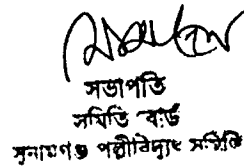 সভাপতি
সমিতি বোর্ড
সুনামগঞ্জ পল্লী বিদ্যুৎ সমিতি